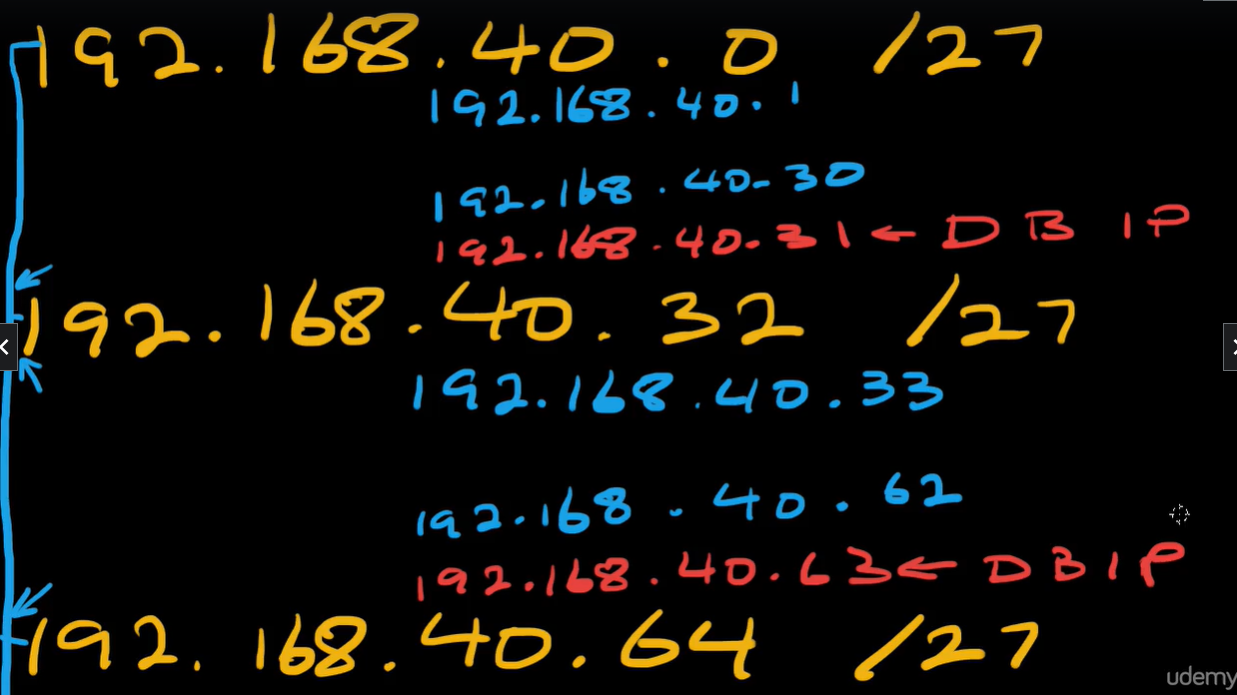 192.168.40.0 /27
192.168.40.1
192.168.40.30
192.168.40.31 ← DB IP
192.168.40.32 /27
192.168.40.33
192.168.40.62
192.168.40.63 ← DB IP
192.168.40.64 /27
udemy